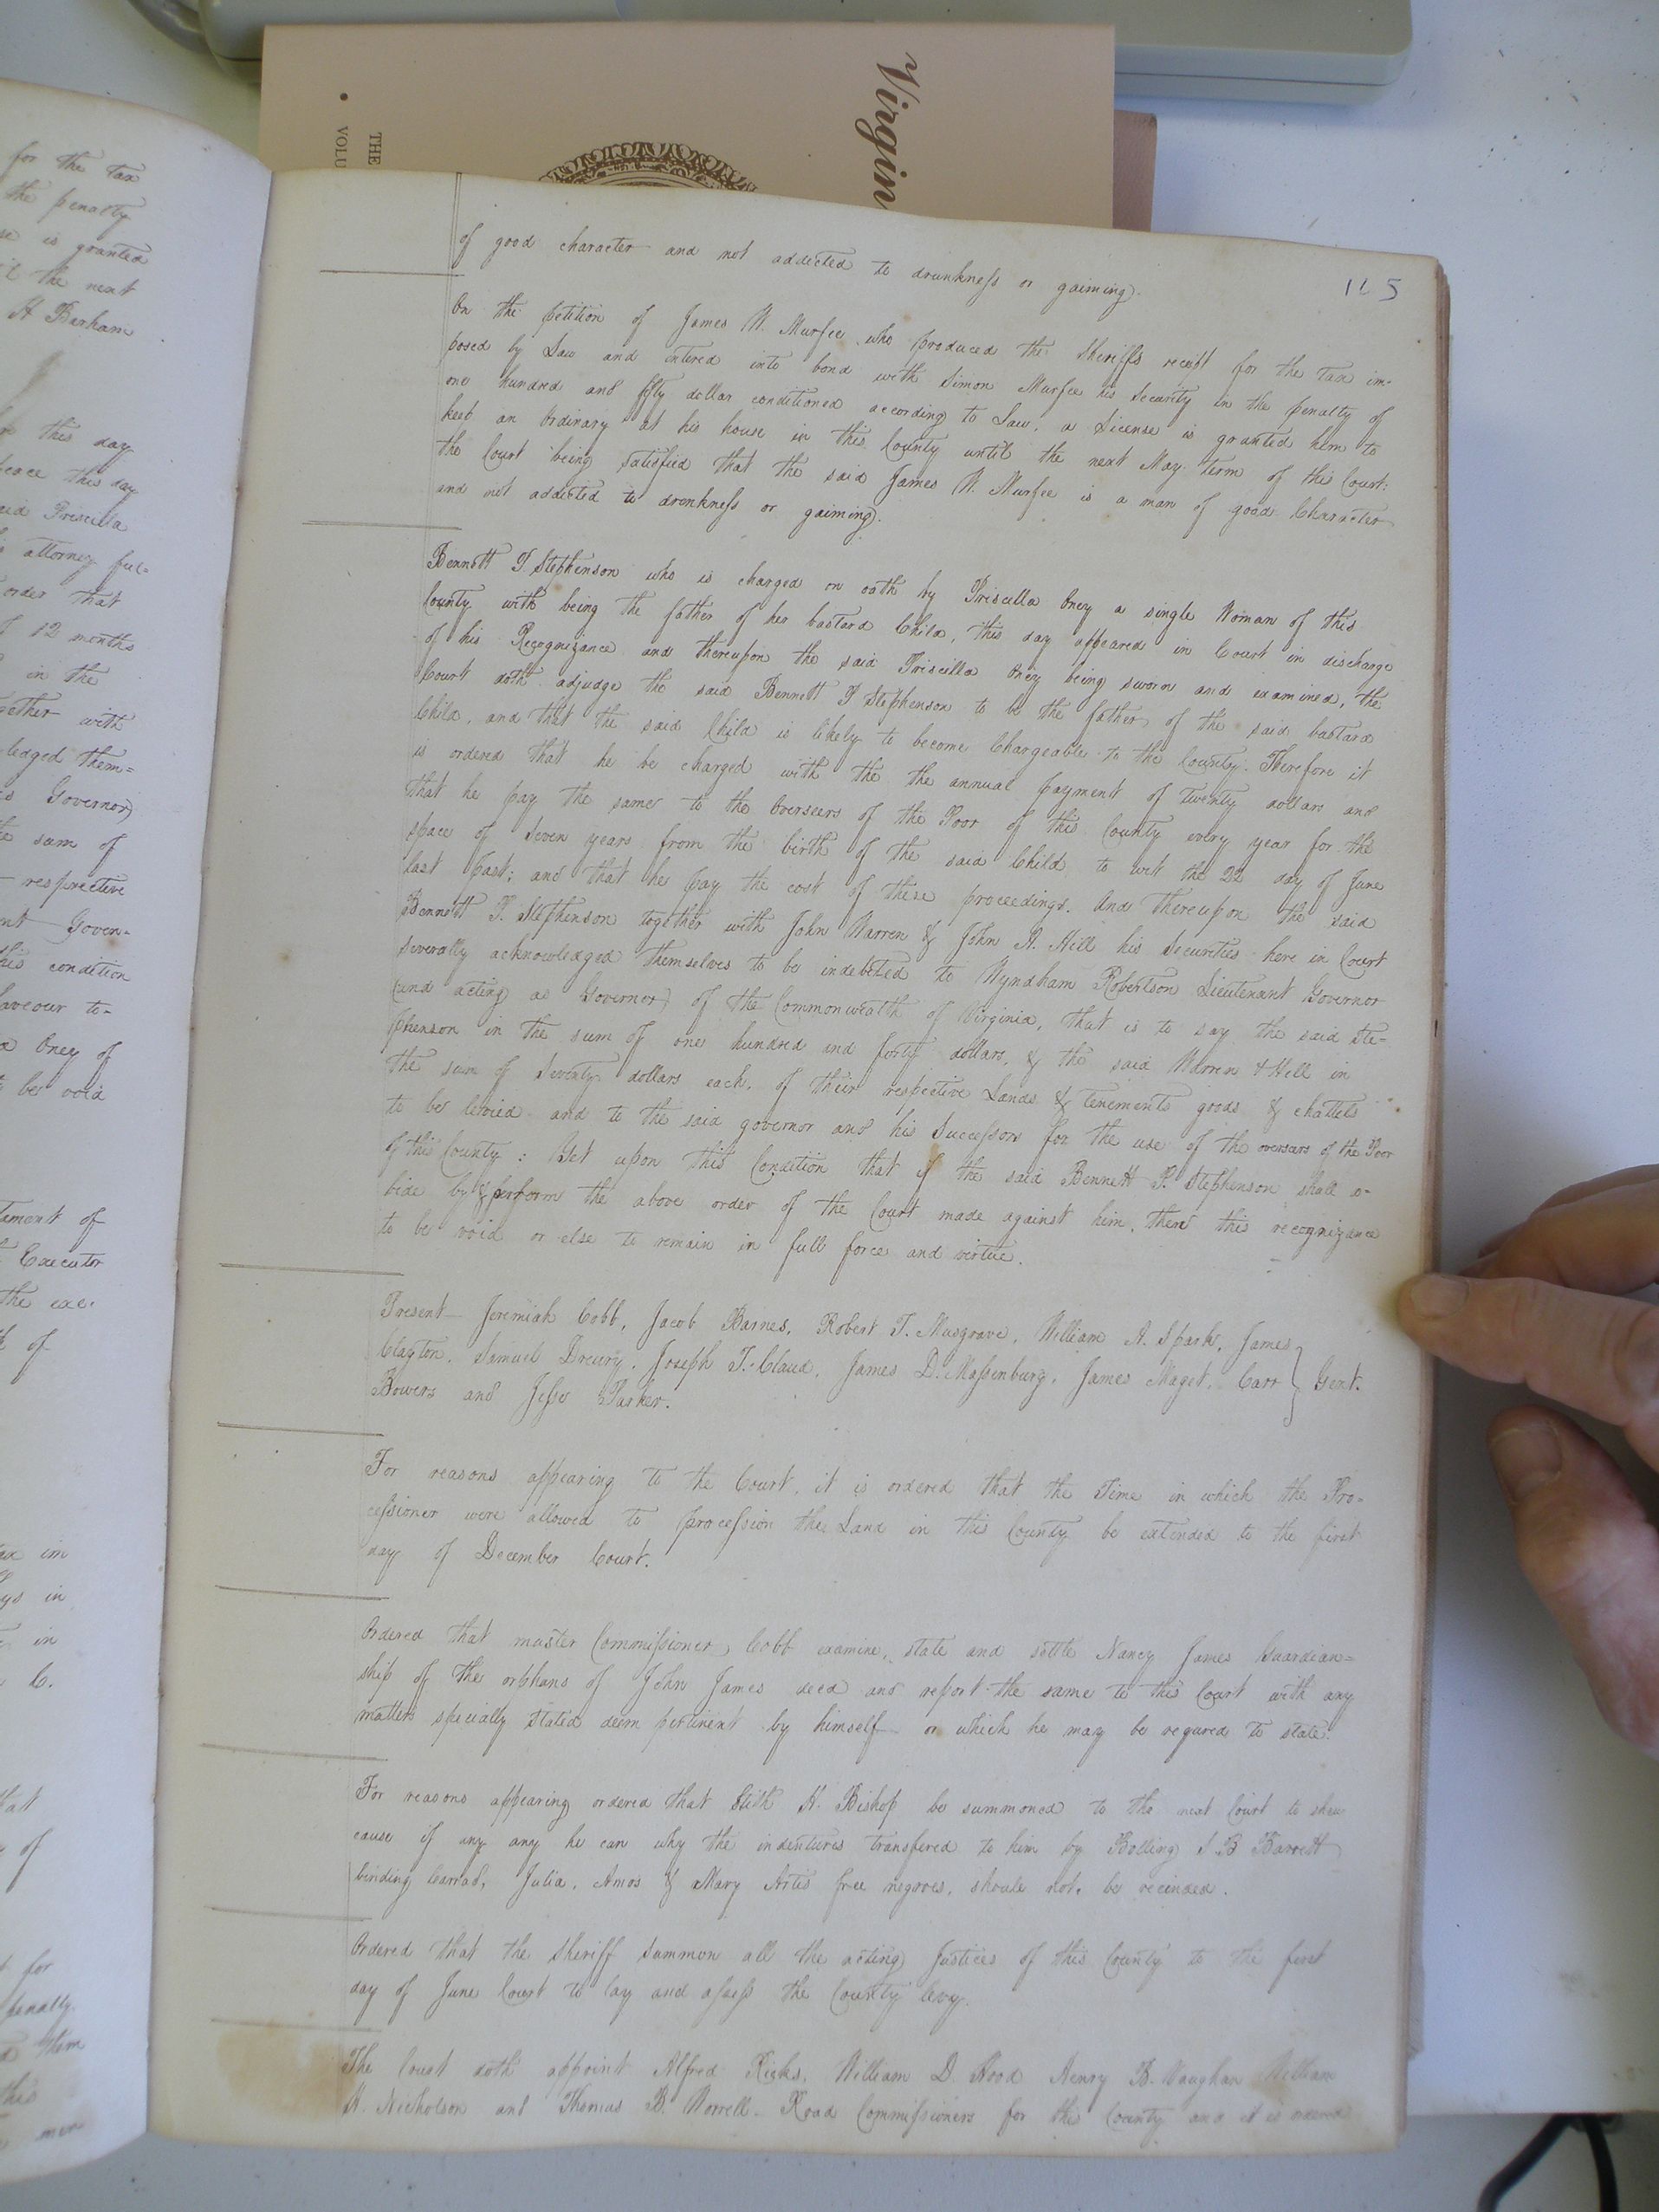 Virgin
THE
• VOLU
for the tax
the penalty
se is granted
il the next
H Barham
this day
peace this day
aid Priscilla
attorney ful=
order that
of 12 months
in the
gether with
ledged them=
s Governor)
the sum of
respective
ent Gover-
this condition
haveour to-
a Oney of
be void
tament of
Executor
the exe-
of
tax im
ys in
in
C.
that
of
for
penalty
them
this
115
of good character and not addicted to drunkness or gaiming.
On the petition of James W. Murfee who produced the Sheriffs receipt for the tax im-
posed by Law and entered into bond with Simon Murfee his Security in the penalty of
one hundred and fifty dollar conditioned according to Law, a License is granted him to
keep an Ordinary at his house in this County until the next May term of this Court:
the Court being satisfied that the said James W. Murfee is a man of good Character
and not addicted to drunkness or gaiming.
Bennett P. Stephenson who is charged on oath by Priscilla Oney a single Woman of this
County with being the father of her bastard Child, this day appeared in Court in discharge
of his Recognizance and thereupon the said Priscilla Oney being sworn and examined, the
Court doth adjudge the said Bennett P Stephenson to be the father of the said bastard
Child, and that the said Child is likely to become Chargeable to the County. Therefore it
is ordered that he be charged with the the annual payment of twenty dollars and
that he pay the same to the Overseers of the Poor of this County every year for the
space of Seven years from the birth of the said Child to wit the 22 day of June
last past; and that he pay the cost of these proceedings. And thereupon the said
Bennett P. Stephenson together with John Warren & John A. Hill his Securities here in Court
severally acknowledged themselves to be indebted to Wyndham Robertson Lieutenant Governor
(and acting as Governor) of the Commonwealth of Virginia, that is to say the said Ste-
phenson in the sum of one hundred and forty dollars, & the said Warren & Hill in
the sum of Seventy dollars each, of their respective Lands & tenements goods & chattels
to be levied and to the said governor and his Successors for the use of the overseers of the Poor
of this County: Yet upon this Condition that if the said Bennett P. Stephenson shall a-
bide by & perform the above order of the Court made against him, then this recognizance
to be void or else to remain in full force and virtue.
Present Jeremiah Cobb, Jacob Barnes, Robert T. Musgrave, William A. Spark, James
Clayton, Samuel Drewry, Joseph T. Claud, James D. Massenburg, James Maget, Carr } Gent.
Bowers and Jesse Parker.
For reasons appearing to the Court, it is ordered that the Time in which the Pro-
cessioner were allowed to procession the Land in this County be extended to the first
day of December Court.
Ordered that master Commissioner Cobb examine, state and settle Nancy James Guardian=
ship of the orphans of John James decd and report the same to this Court with any
matters specially stated deem pertinent by himself or which he may be requred to state.
For reasons appearing ordered that Stith H. Bishop be summoned to the next Court to shew
cause if any any he can why the indentures transfered to him by Bolling S B Barrett
binding Carrad, Julia, Amos & Mary Artis free negroes, shoule not be recinded.
Ordered that the Sheriff summon all the acting Justices of this County to the first
day of June Court to lay and assess the County levy.
The Court doth appoint Alfred Ricks, William D. Hood Henry B. Vaughan William
H. Nicholson and Thomas B. Worrell Road Commissioners for this County and it is ordered